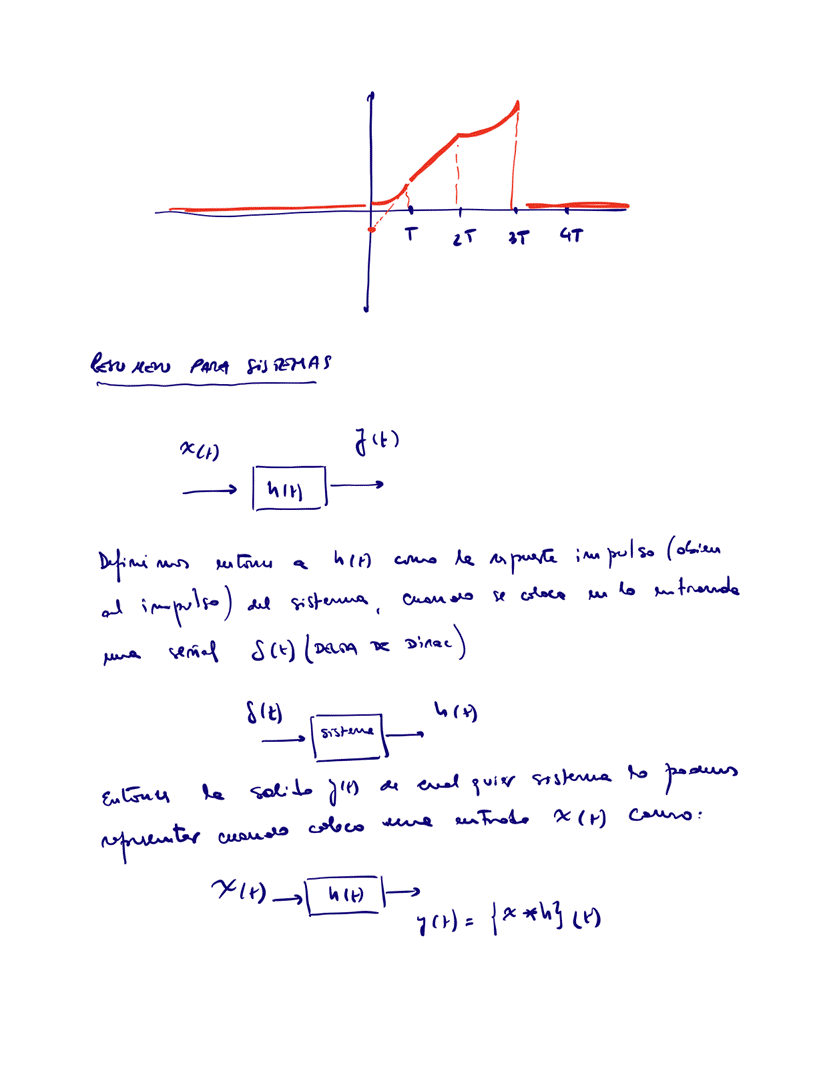 T 2T 3T 4T
RESUMEN PARA SISTEMAS
x(t) y(t)
h(t)
Definimos entonces a h(t) como la respuesta impulso (o bien
al impulso) del sistema, cuando se coloca en la entrada
una señal δ(t) (DELTA DE DIRAC)
δ(t) h(t)
sistema
Entonces la salida y(t) de cualquier sistema lo podemos
representar cuando coloco una entrada x(t) como:
x(t) h(t)
y(t) = {x * h} (t)